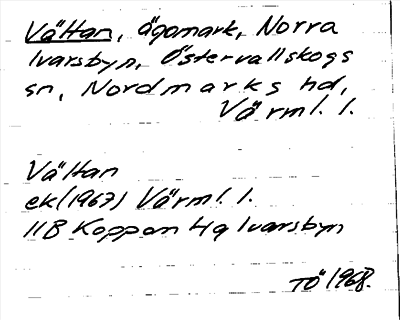 Vältan, ägomark, Norra
Ivarsbyn, Östervallskogs
sn, Nordmarks hd,
Värml. l.
Vältan
ek (1967) Värml. l.
11B Koppom 4g Ivarsbyn
TÖ 1968.